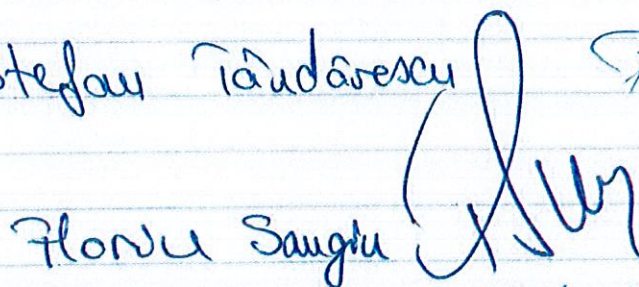 Ștefan Țăndărescu
Florin Sangiu